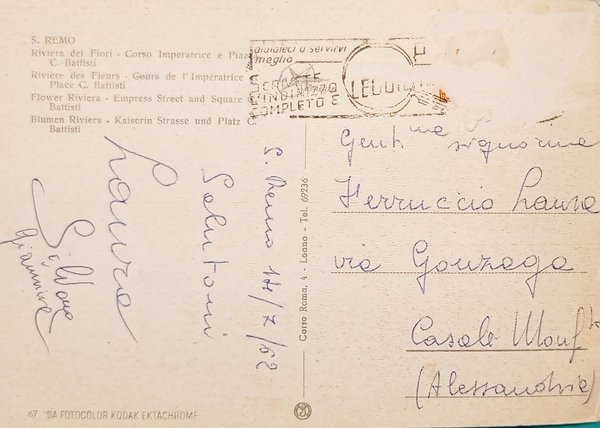 S. REMO
Riviera dei Fiori - Corso Imperatrice e Piaz
C. Battisti
Rivière des Fleurs - Cours de l'Impératrice
Place C. Battisti
Flower Riviera - Empress Street and Square
Battisti
Blumen Riviera - Kaiserin Strasse und Platz C.
Battisti
aiutateci a servirvi
meglio
SCRIVETE
L'INDIRIZZO
COMPLETO E
S. Remo 14/7/62
Salutoni
Laura
Silvana
Giannina
Corso Roma, 4 - Loano - Tel. 69236
Gent.me signorine
Ferruccio Laura
via Gonzaga
Casale Monf.to
(Alessandria)
67 DA FOTOCOLOR KODAK EKTACHROME